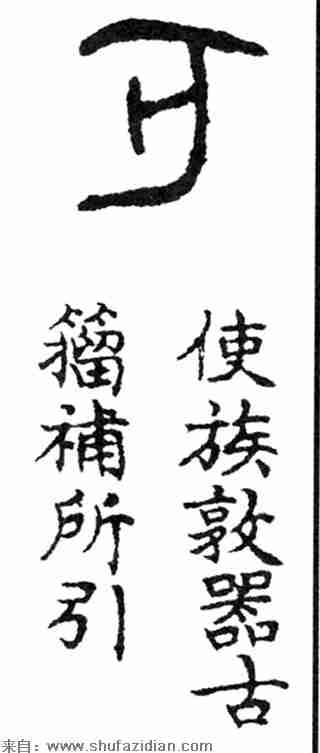 使族敦器古
籕補所引
来自：www.shufazidian.com